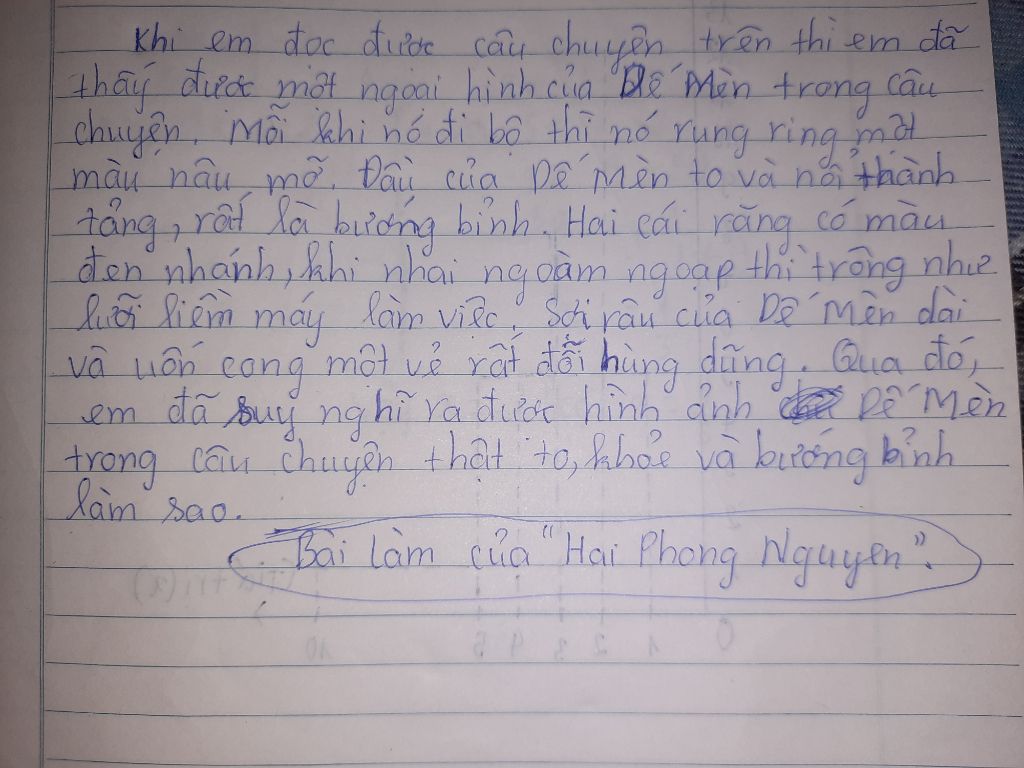 Khi em đọc được câu chuyện trên thì em đã
thấy được một ngoại hình của Dế Mèn trong câu
chuyện. Mỗi khi nó đi bộ thì nó rung ring một
màu nâu mỡ. Đầu của Dế Mèn to và nổi thành
tảng, rất là bướng bỉnh. Hai cái răng có màu
đen nhánh, khi nhai ngoàm ngoạp thì trông như
lưỡi liềm máy làm việc. Sợi râu của Dế Mèn dài
và uốn cong một vẻ rất đỗi hùng dũng. Qua đó,
em đã suy nghĩ ra được hình ảnh Dế Mèn
trong câu chuyện thật to, khỏe và bướng bỉnh
làm sao.
Bài làm của "Hai Phong Nguyen".
0 1 2 3 4 5 10